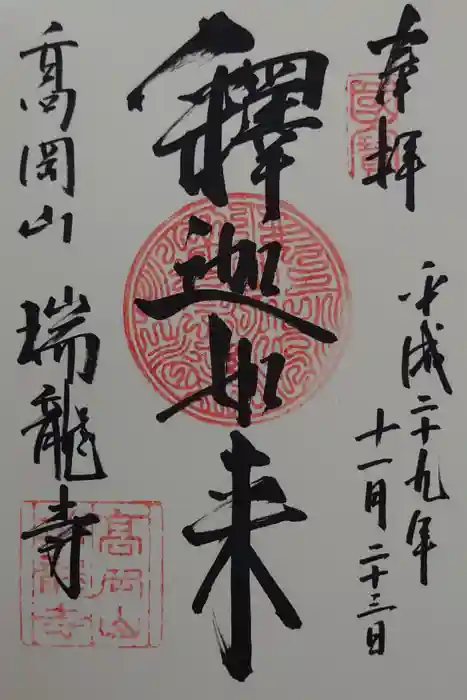 奉拝
平成二十九年
十一月二十三日
釋迦如来
高岡山 瑞龍寺
國寶
高岡山
瑞龍寺